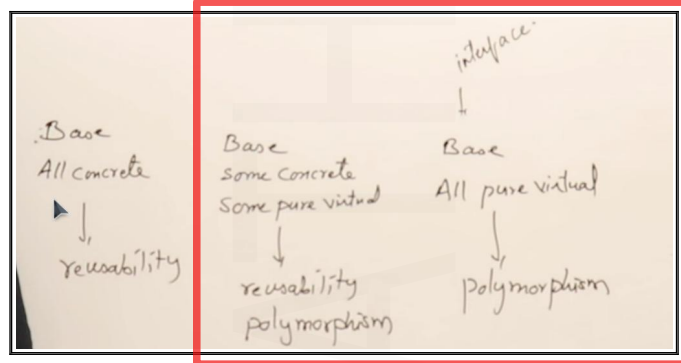 Base
All concrete
reusability
Base
Some concrete
Some pure virtual
reusability
polymorphism
interface
Base
All pure virtual
polymorphism